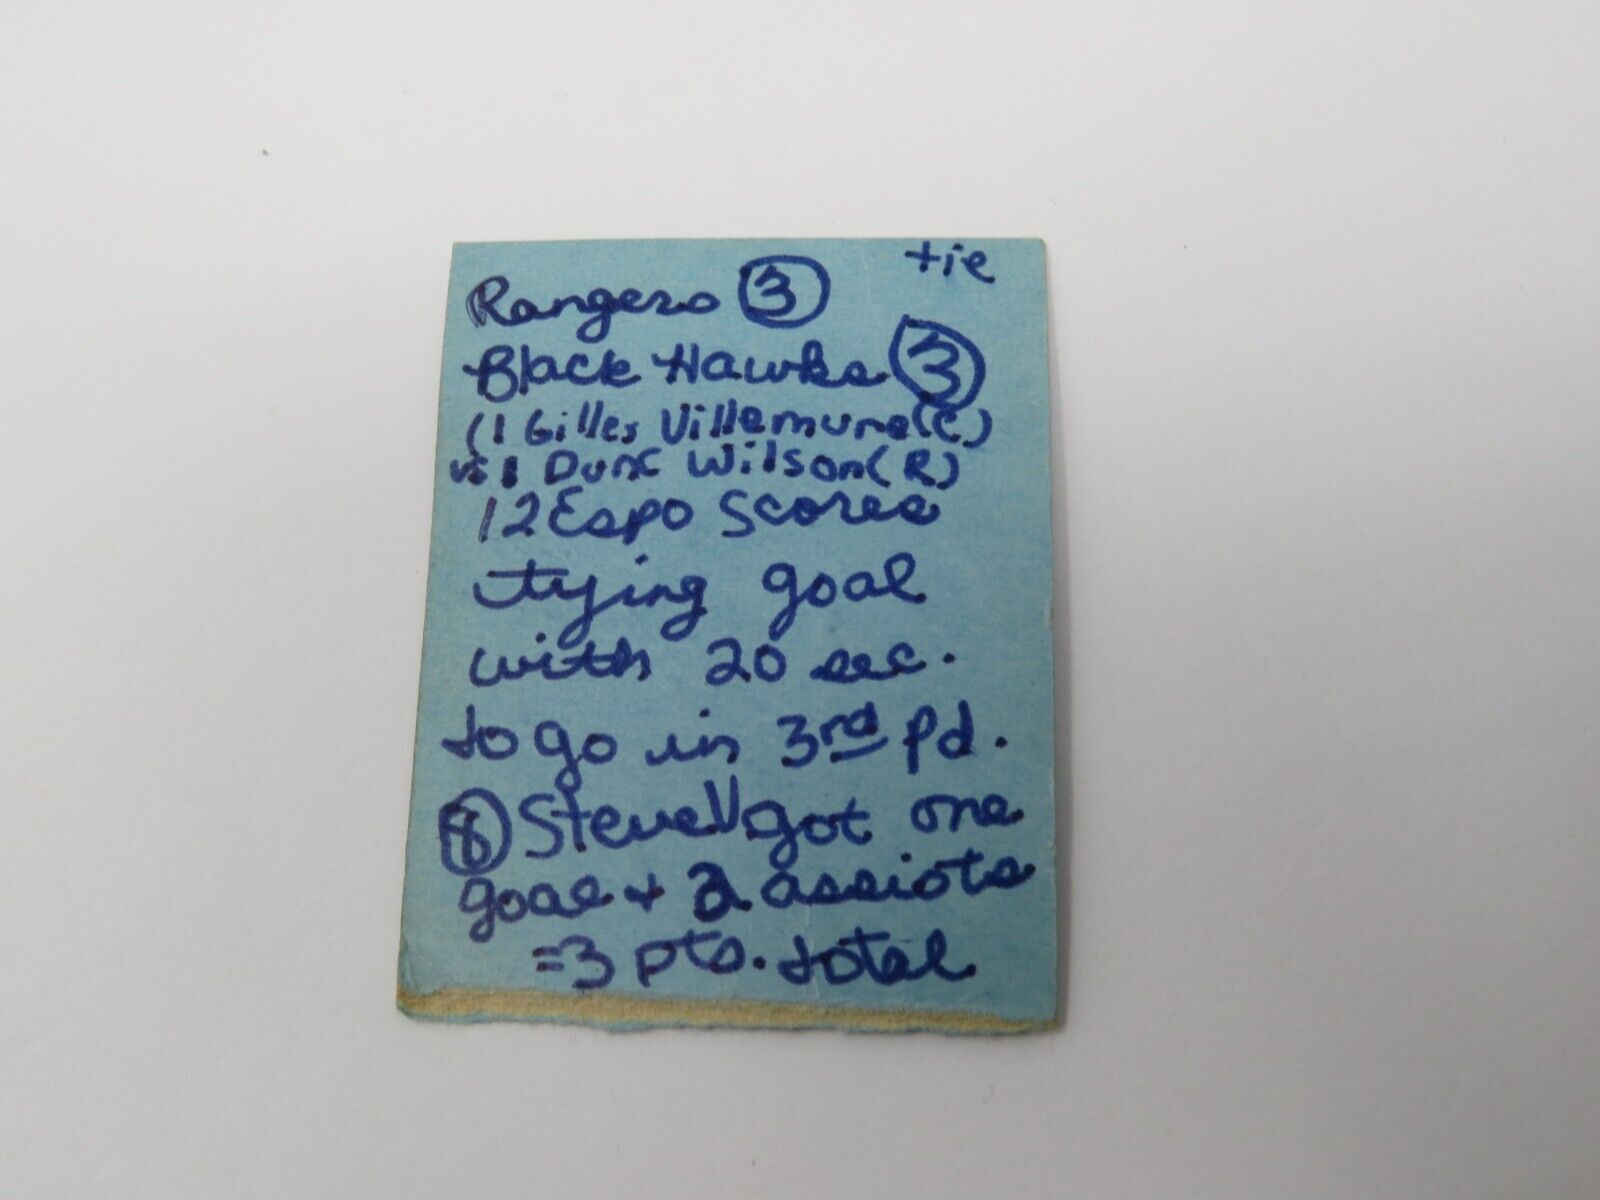 tie
Rangers 3
Black Hawks 3
(1 Gilles Villemure (C)
vs 1 Dunc Wilson (R)
12 Espo Scores
tying goal
with 20 sec.
to go in 3rd pd.
8 Steve V got one
goal + 2 assists
=3 pts. total